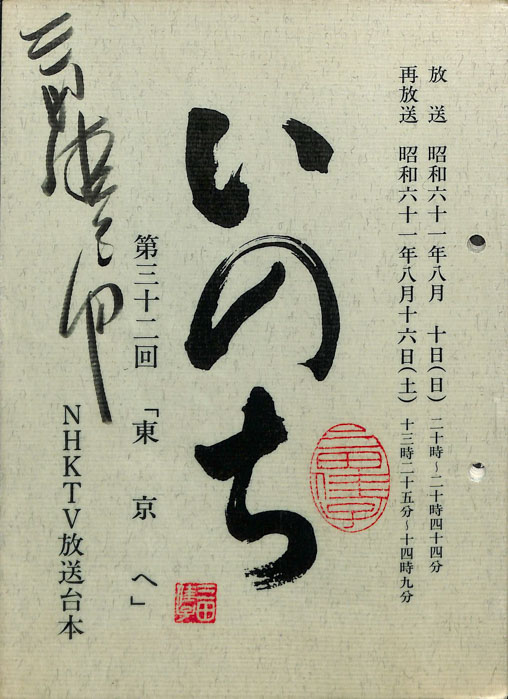 放　送　昭和六十一年八月　十日(日)　二十時～二十時四十四分
再放送　昭和六十一年八月十六日(土)　十三時二十五分～十四時九分
いのち
第三十二回　「東　京　へ」
NHKTV放送台本
三田佳子